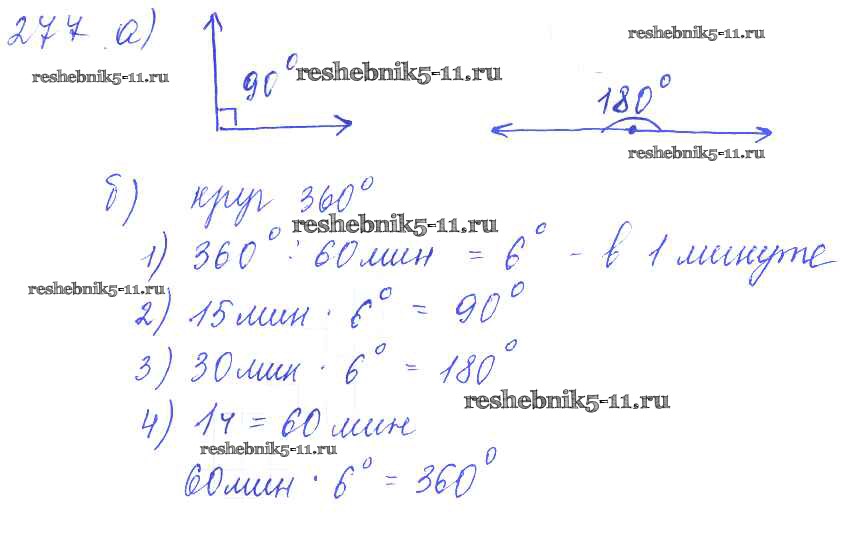 277 а) reshebnik5-11.ru
reshebnik5-11.ru 90° reshebnik5-11.ru 180°
reshebnik5-11.ru
б) круг 360°
reshebnik5-11.ru
1) 360° : 60 мин = 6° - в 1 минуте
reshebnik5-11.ru
2) 15 мин · 6° = 90°
3) 30 мин · 6° = 180°
reshebnik5-11.ru
4) 1ч = 60 мин
reshebnik5-11.ru
60 мин · 6° = 360°